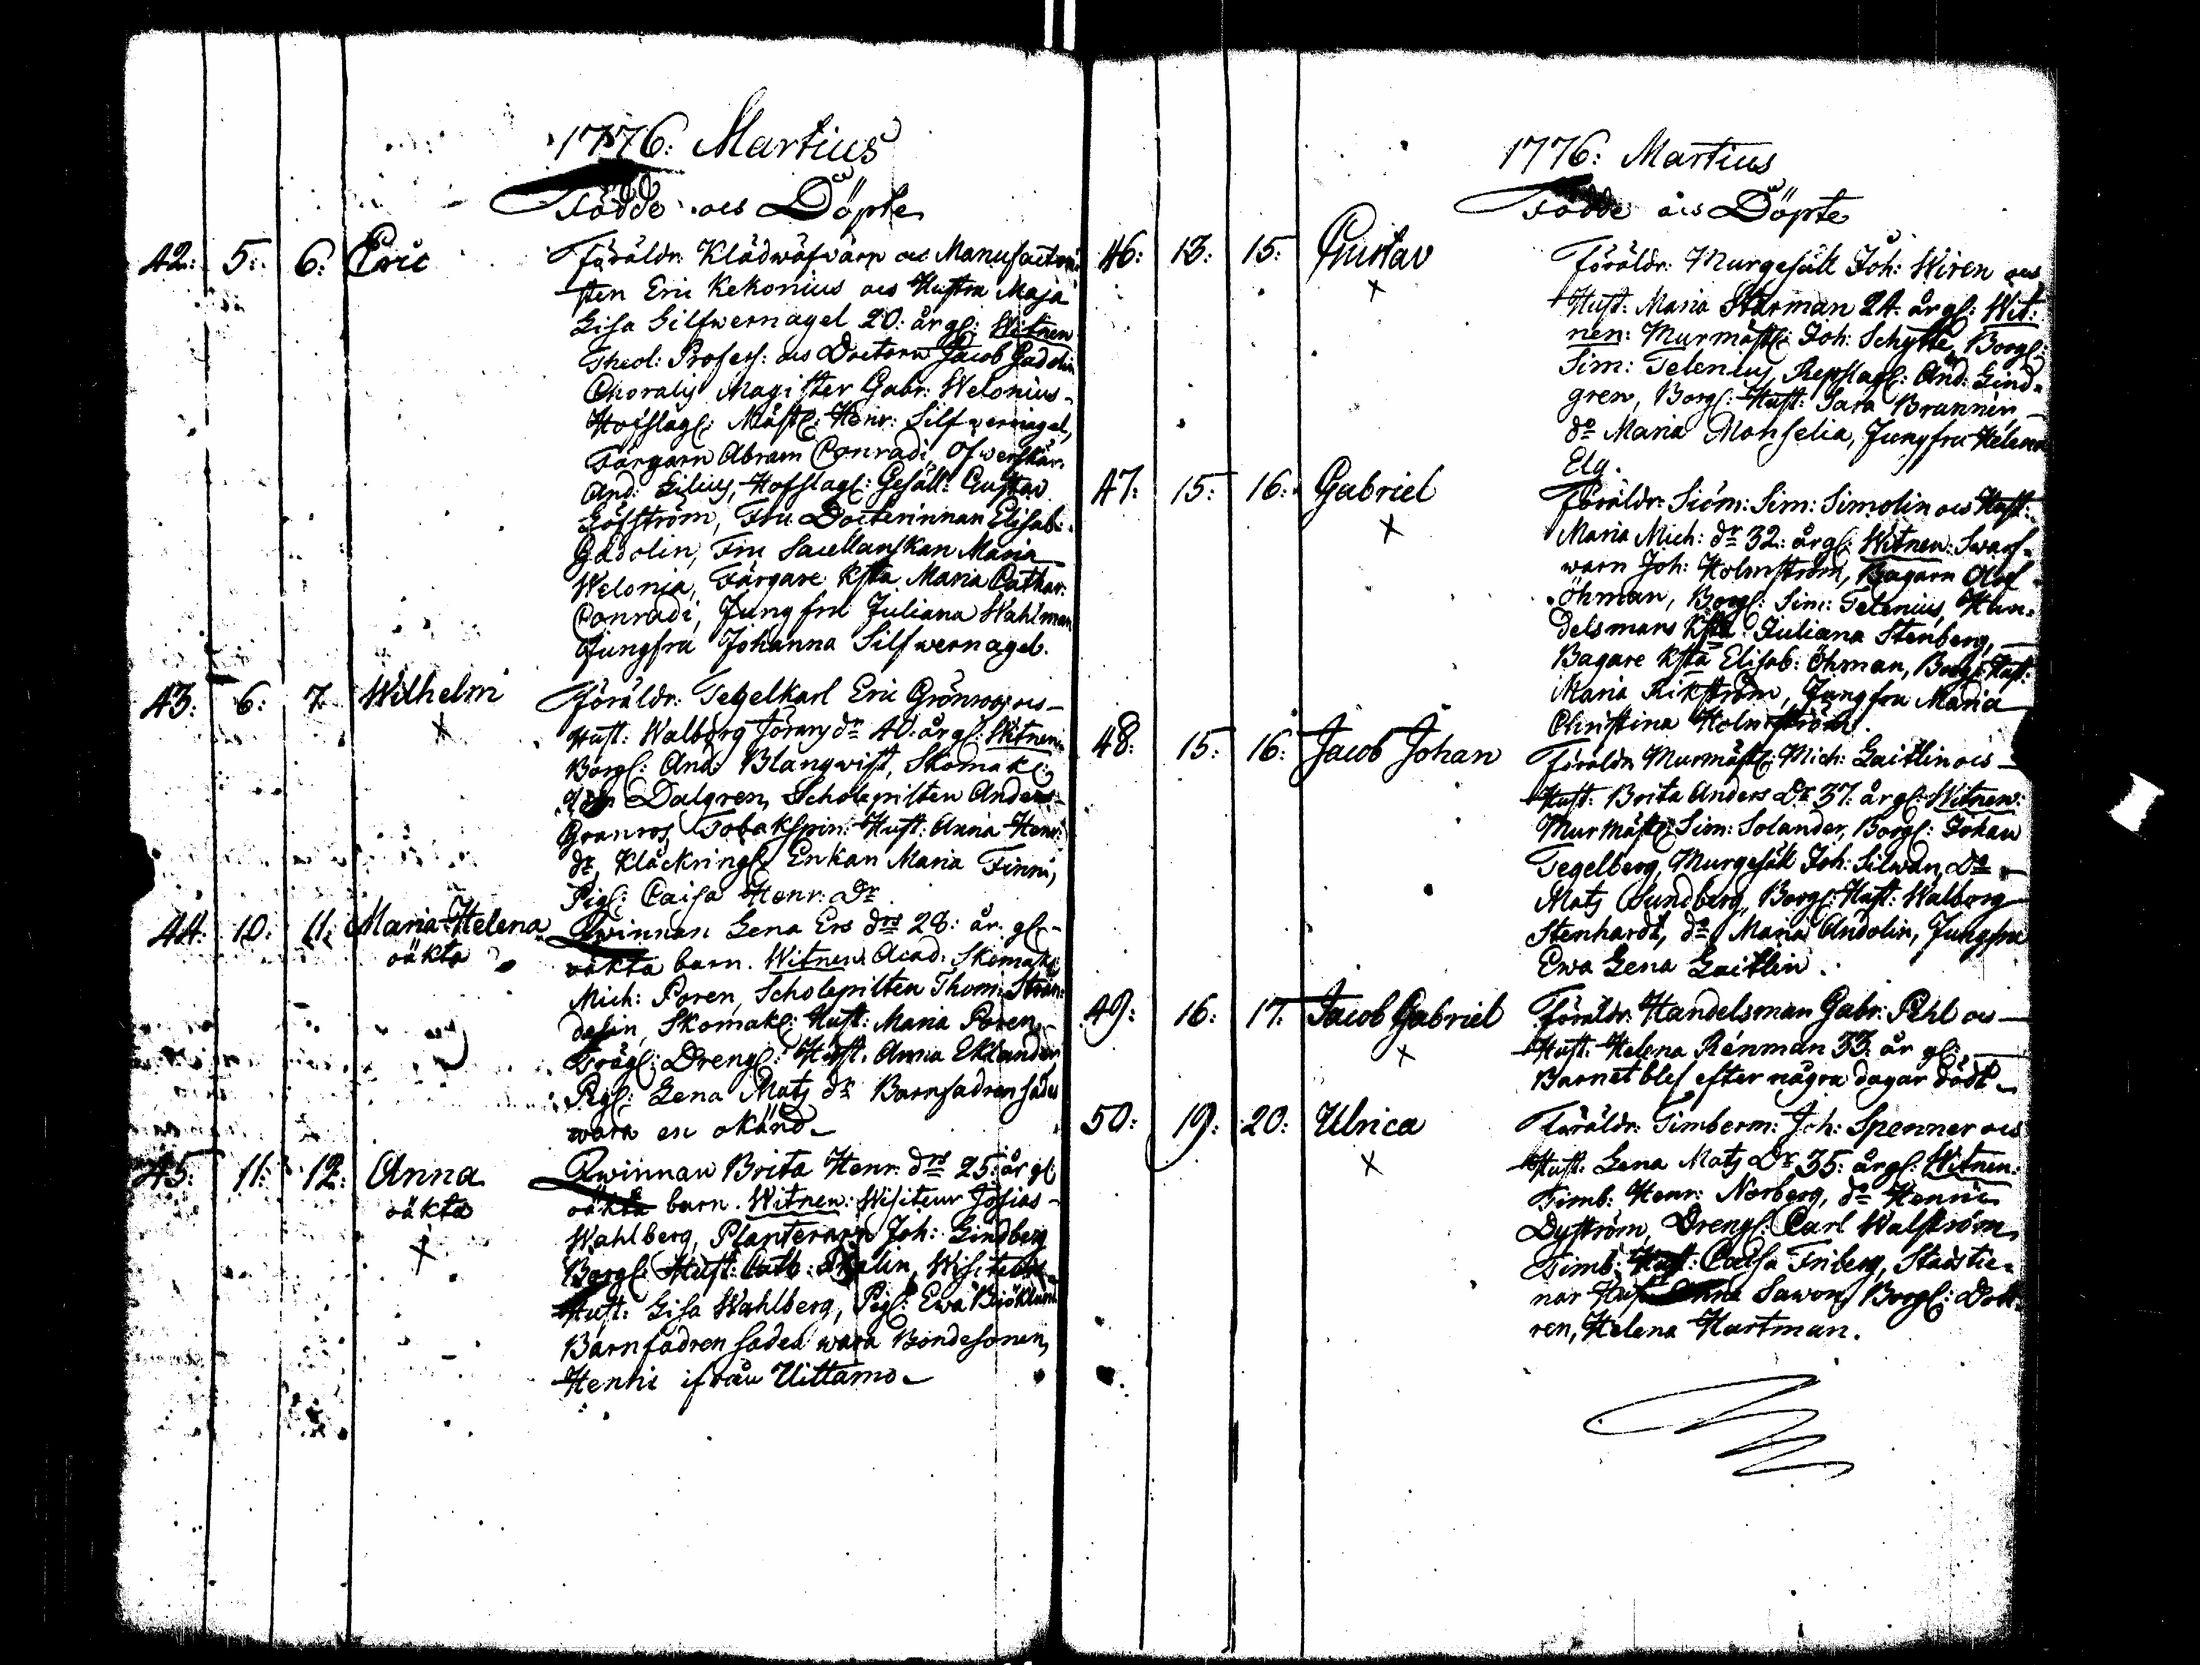 1776: Martius
Födde och Döpte
42: 5: 6: Eric Föräldr: Klädwäfvarn och Manufacturi-
sten Eric Kekonius och Hustru Maja
Lisa Silfwernagel 20: år gl: Witnen
Theol: Profess: och Doctorn Jacob Gadolin
Choralis Magister Gabr: Welonius
Hofslag: Mäst: Henr: Silfwernagel,
Färgarn Abram Conradi, Öfwerskär:
And: Lilius, Hofslag: Gesäll: Gustav
Löfström, Fru Docterinnan Elisab:
Gadolin, Fru Sacellanskan Maria
Welonia, Färgare k:sta Maria Cathar:
Conradi, Jungfru Juliana Wahlman
Jungfru Johanna Silfwernagel.
43: 6: 7: Wilhelm Föräldr: Tegelkarl Eric Grönroos och
Hust: Walborg Jörans dr 40: år gl: Witnen
Borg: And: Blanqwist, Skomak:
Dalgren, Scholepilten Anders
Granros, Tobakspin: Hust: Anna Henr:
dr, Kläckring: Enkan Maria Finni,
Pig: Caisa Henr: Dr
44: 10: 11: Maria Helena Qwinnan Lena Ers drs 28: år gl:
oäkta oäkta barn. Witnen: Acad: Skomak:
Mich: Poren, Scholepilten Thom:
Skomak: Hust: Maria Poren,
Dreng: Hust: Anna Eklander
Pig: Lena Mats dr Barnfadren sades
wara en okänd
45: 11: 12: Anna Qwinnan Brita Henr: drs 25: år gl:
oäkta oäkta barn. Witnen: Wisiteur Josias
Wahlberg, Planteraren Joh: Lindberg
Borg: Hust: Cath:
Hust: Lisa Wahlberg, Pig: Ewa Björklund
Barnfadren sades wara Bondesonen,
Henric ifrån Uittamo
1776: Martius
Födde och Döpte
46: 13: 15: Gustav Föräldr: Murgesäll Joh: Wiren och
Hust: Maria Starman 24: år gl: Wit-
nen: Murmäst: Joh: Schytte, Borg:
Sim: Telenius, Repslag: And: Lind-
gren, Borg: Hust: Sara Brunnin
do Maria Monselia, Jungfru Helena
Elg.
47: 15: 16: Gabriel Föräldr: Sjöm: Sim: Simolin och Hust:
Maria Mich: dr 32: år gl: Witnen: Swarf-
warn Joh: Holmström, Bagarn Olof
Öhman, Borg: Sim: Telenius, Han-
delsmans k:sta Juliana Stenberg,
Bagare k:sta Elisab: Öhman, Borg: Hust:
Maria Rikström, Jungfru Maria
Christina Holmström.
48: 15: 16: Jacob Johan Föräldr: Murmäst: Mich: Laitlin och
Hust: Brita Anders Dr 37: år gl: Witnen:
Murmäst: Sim: Solander, Borg: Johan
Tegelberg, Murgesäll Joh: Silwan, Do
Mats Sundberg, Borg: Hust: Walborg
Stenhardt, do Maria Andolin, Jungfru
Ewa Lena Laitlin.
49: 16: 17: Jacob Gabriel Föräldr: Handelsman Gabr: Pihl och
Hust: Helena Renman 33: år gl:
Barnet blef efter några dagar dödt
50: 19: 20: Ulrica Föräldr: Timberm: Joh: Spenner och
Hust: Lena Mats Dr 35: år gl: Witnen:
Timb: Henr: Norberg, do Henric
Dyström, Dreng: Carl Walström
Timb: Hust: Caisa Friberg, Stadstie-
nar Hust: Anna Sawon, Borg: Dott-
ren, Helena Hartman.